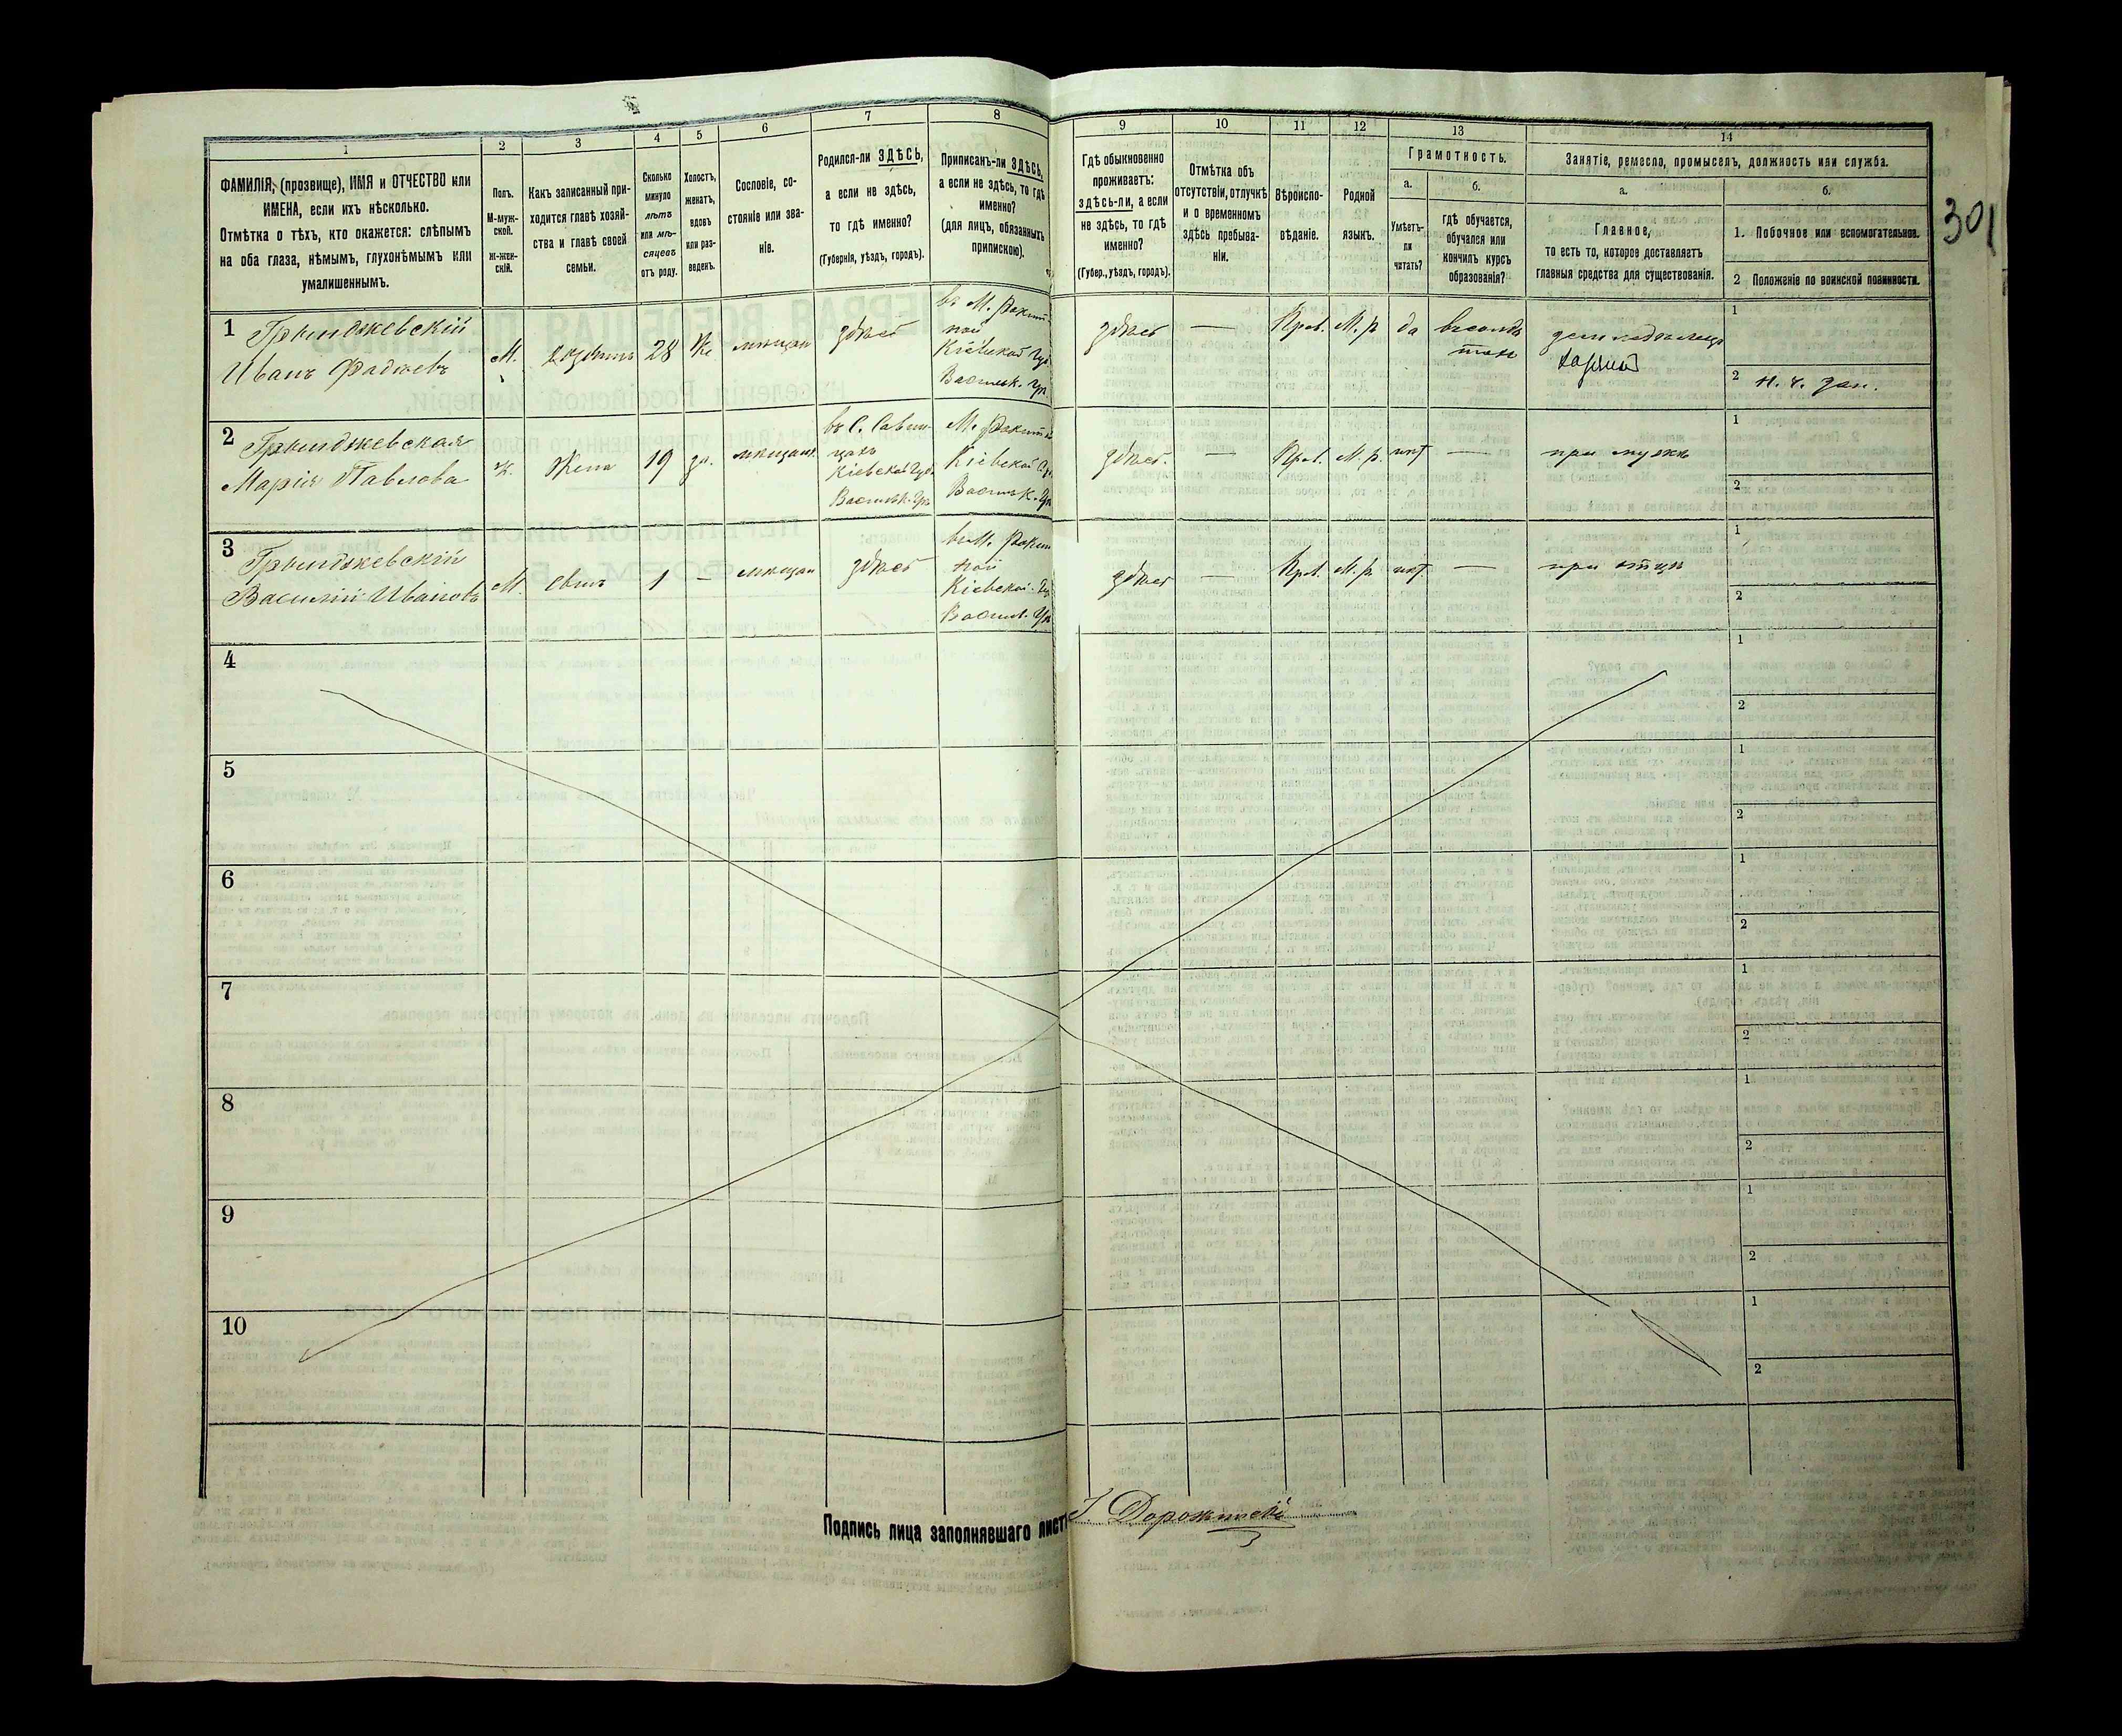 1
2
3
4
5
6
7
8
ФАМИЛІЯ, (прозвище), ИМЯ и ОТЧЕСТВО или
ИМЕНА, если ихъ нѣсколько.
Отмѣтка о тѣхъ, кто окажется: слѣпымъ
на оба глаза, нѣмымъ, глухонѣмымъ или
умалишеннымъ.
Полъ.
М-муж-
ской.
Ж-жен-
скій.
Какъ записанный при-
ходится главѣ хозяй-
ства и главѣ своей
семьи.
Сколько
минуло
лѣтъ
или мѣ-
сяцевъ
отъ роду.
Холостъ,
женатъ,
вдовъ
или раз-
веденъ.
Сословіе, со-
стояніе или зва-
ніе.
Родился-ли ЗДѢСЬ,
а если не здѣсь,
то гдѣ именно?
(Губернія, уѣздъ, городъ).
Приписанъ-ли ЗДѢСЬ,
а если не здѣсь, то гдѣ
именно?
(для лицъ, обязанныхъ
припискою).
9
10
11
12
13
14
Гдѣ обыкновенно
проживаетъ:
здѣсь-ли, а если
не здѣсь, то гдѣ
именно?
(Губер., уѣздъ, городъ).
Отмѣтка объ
отсутствіи, отлучкѣ
и о временномъ
здѣсь пребыва-
ніи.
Вѣроиспо-
вѣданіе.
Родной
языкъ.
Грамотность.
а.
Умѣетъ-
ли
читать?
б.
гдѣ обучается,
обучался или
кончилъ курсъ
образованія?
Занятіе, ремесло, промыселъ, должность или служба.
а.
Главное,
то есть то, которое доставляетъ
главныя средства для существованія.
б.
1. Побочное или вспомогательное.
2 Положеніе по воинской повинности.
301
1
Грынджевскій
Иванъ Фадѣевъ
М.
хозяинъ
28
Же
мѣщан
здѣсь
въ М. Ракит-
ной
Кіевской Губ
Васильк. Уѣ
здѣсь
—
Прав.
М. р
да
1
2 н. ч. зап.
2
Грынджевская
Марія Павлова
ж.
Жена
19
за.
мѣщан.
въ С. Савин-
цахъ
Кіевской Губ
Васильк. Уѣ
М. Ракитна
Кіевской Гу
Васильк. Уѣ
здѣсь.
—
Прав.
М. р.
нѣт
—
при мужѣ
1
2
3
Грынджевскій
Василій Ивановъ
М.
сынъ
1
—
мѣщан
здѣсь
въ М. Ракит
ной
Кіевской Губ
Васил. Уѣ
здѣсь
—
Прав.
М. р.
нѣт
—
при отцѣ
1
2
4
1
2
5
1
2
6
1
2
7
1
2
8
1
2
9
1
2
10
1
2
Подпись лица заполнявшаго лист